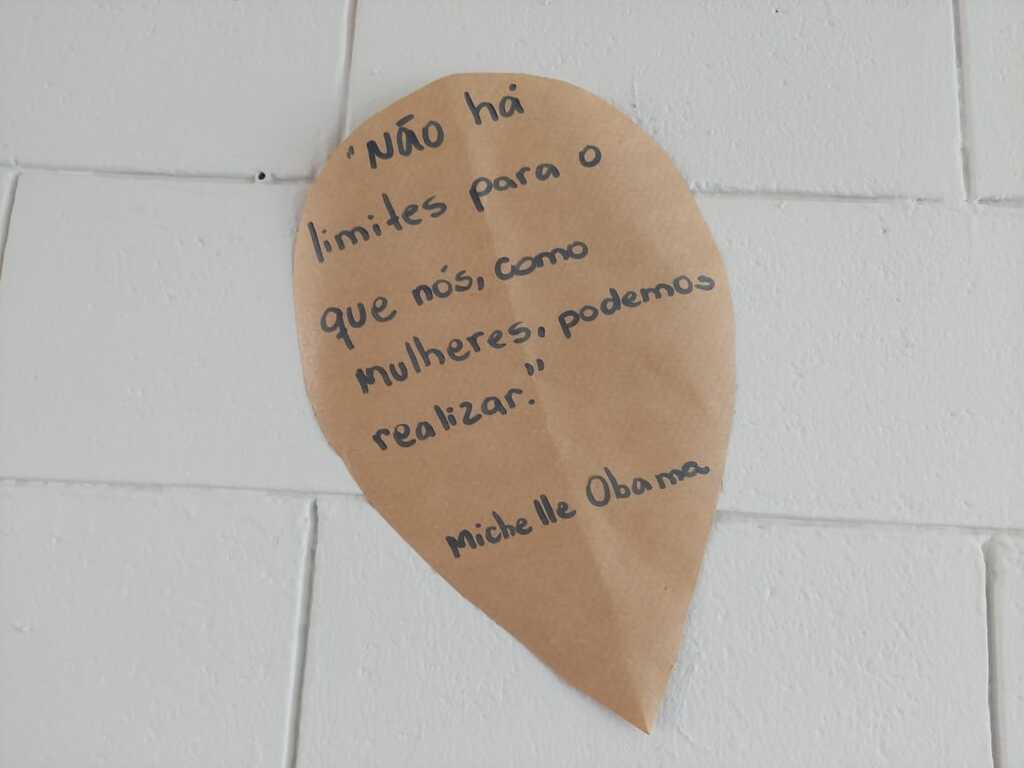 "Não há
limites para o
que nós, como
mulheres, podemos
realizar."
Michelle Obama